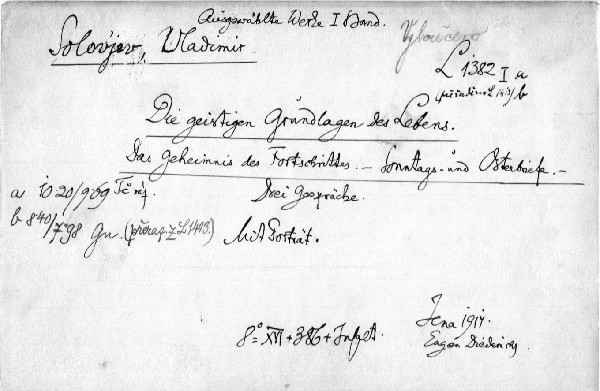 Ausgewählte Werke I Band.
Solovjev, Vladimir
Vyloučeno
L 1382 I a
b
Die geistigen Grundlagen des Lebens.
Das Geheimnis des Fortschrittes. – Sonntags- und Osterbriefe. –
Drei Gespräche.
a 1020/969
b 840/798 Gn. L 1413.)
Mit Porträt.
8° = XVI + 386 +
Jena 1914.
Eugen Diederichs